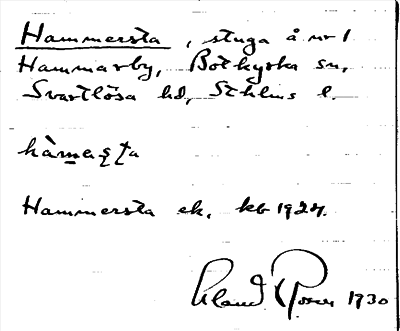 Hammersta, stuga å nr 1
Hammarby, Botkyrka sn,
Svartlösa hd, Sthlms l.
hàmaşta
Hammersta ek. kb 1924.
1930